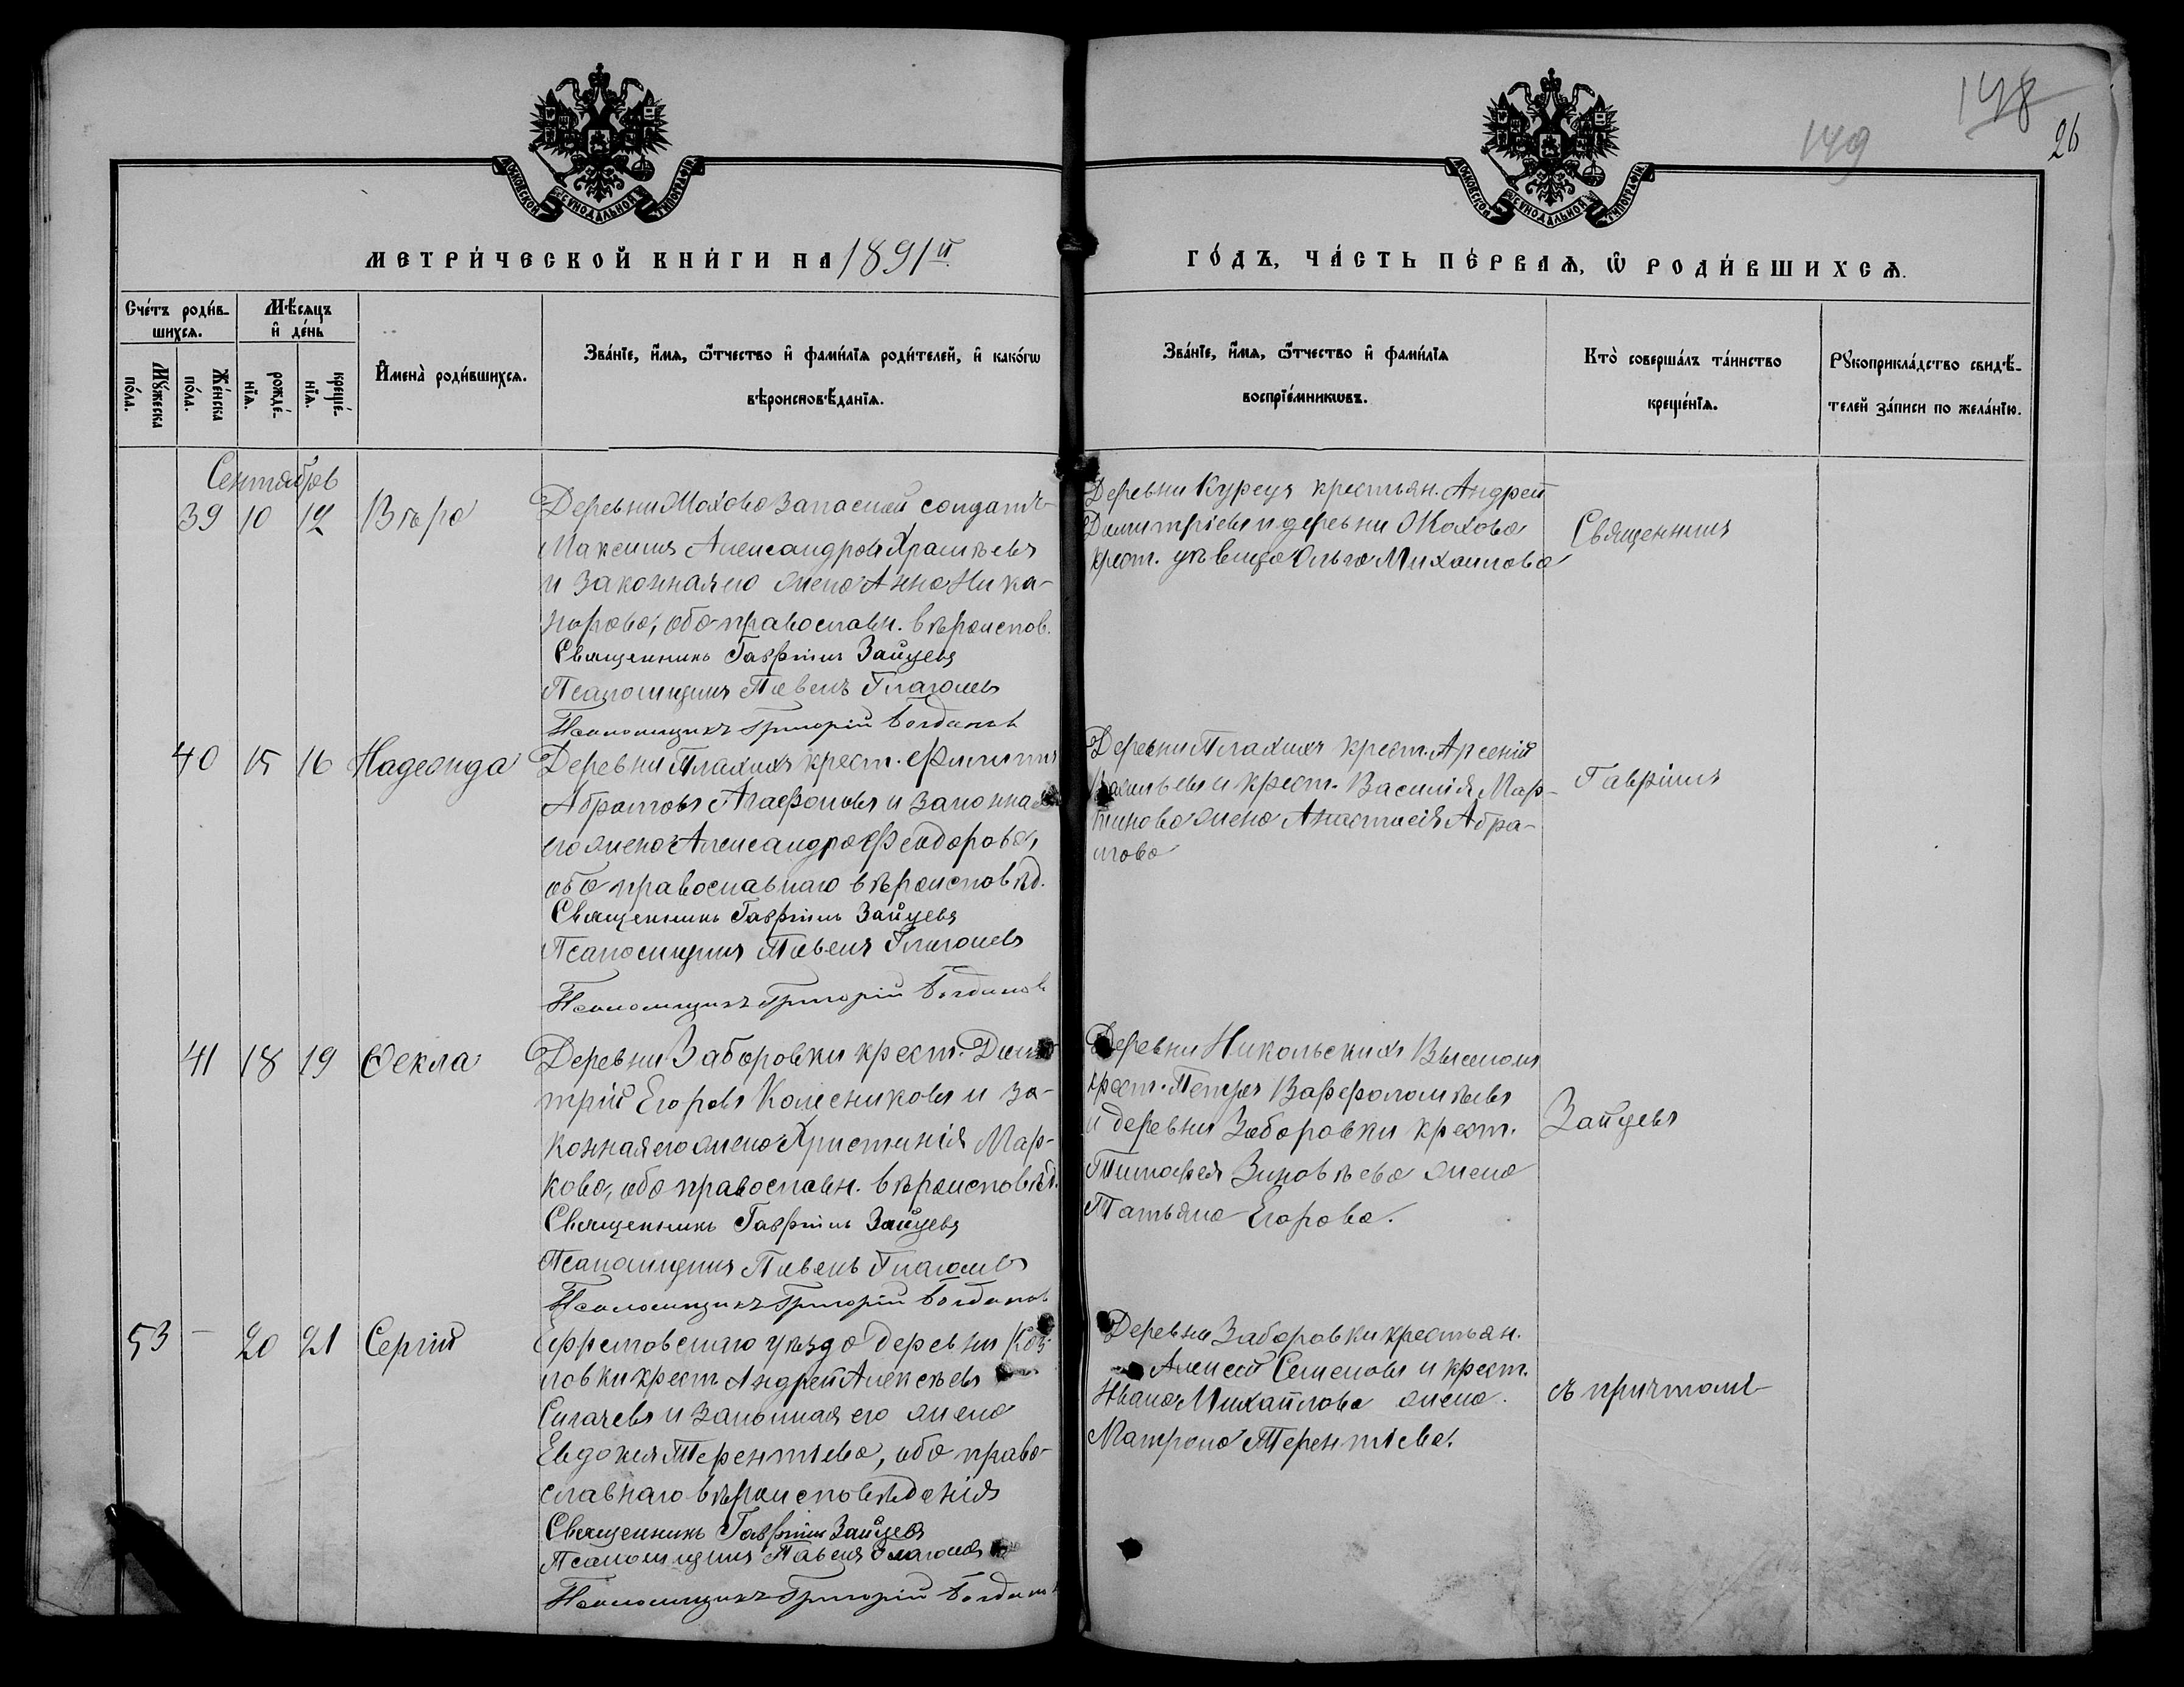 148
149
26
МОСКОВСКОЙ СѴНОДАЛЬНОЙ ТИПОГРАФІИ
МОСКОВСКОЙ СѴНОДАЛЬНОЙ ТИПОГРАФІИ
МЕТРИ́ЧЕСКОЙ КНИ́ГИ НА 1891 й
ГО́ДЪ, ЧА́СТЬ ПЕ́РВАѦ, Ѡ РОДИ́ВШИХСѦ.
Сче́тъ роди́в-
шихсѧ.
Мѣсѧцъ
и де́нь
Мꙋжеска
по́ла.
Же́нска
по́ла.
рожде́-
нїѧ.
креще́-
нїѧ.
Имена̀ роди́вшихсѧ.
Зва́нїе, и́мѧ, ѻ́тчество и фами́лїѧ роди́телей, и како́гѡ
вѣроисповѣданїѧ.
Зва́нїе, и́мѧ, ѻ́тчество и фами́лїѧ
воспрїе́мникѡвъ.
Кто̀ соверша́лъ та́инство
креще́нїѧ.
Рꙋкоприкла́дство свидѣ-
телей за́писи по жела́нїю.
Сентябрь
39 10 12 Вѣра
Деревни Мохова Запасный солдатъ
Максимъ Александровъ
и законная его жена Анна Ника-
норова, оба православн. вѣроиспов.
Священникъ Гавріилъ Зайцевъ
Псаломщикъ Павелъ Глаголевъ
Псаломщикъ Григорій Богдановъ
Деревни Курецъ крестьян. Андрей
Димитріевъ и деревни Мохова
крест. дѣвица Ольга Михаилова
Священникъ
40 15 16 Надежда
Деревни Плахихъ крест. Филиппъ
Абрамовъ Агафоновъ и законная
его жена Александра Феодорова,
оба православнаго вѣроисповѣд.
Священникъ Гавріилъ Зайцевъ
Псаломщикъ Павелъ Глаголевъ
Псаломщикъ Григорій Богдановъ
Деревни Плахихъ крест. Арсеній
Васильевъ и крест. Василія Мар-
тинова жена Анастасія Абра-
мова
Гавріилъ
41 18 19 Ѳекла
Деревни Заборовки крест. Дими-
трій Егоровъ Колесниковъ и за-
конная его жена Христинія Мар-
кова, оба православн. вѣроисповѣд.
Священникъ Гавріилъ Зайцевъ
Псаломщикъ Павелъ Глаголевъ
Псаломщикъ Григорій Богдановъ
Деревни Никольскихъ Выселокъ
крест. Петръ Варфоломѣевъ
и деревни Заборовки крест.
Тимофея Зиновьева жена
Татьяна Егорова.
Зайцевъ
53 - 20 21 Сергій
Ефремовскаго уѣзда деревни Коз-
ловки крест. Андрей Алексѣевъ
Сигачевъ и законная его жена
Евдокія Терентіева, оба право-
славнаго вѣроисповѣданія
Священникъ Гавріилъ Зайцевъ
Псаломщикъ Павелъ Глаголевъ
Псаломщикъ Григорій Богдановъ
Деревни Заборовки крестьян.
Алексей Семеновъ и крест.
Ивана Михайлова жена
Матрона Терентіева.
съ причтомъ